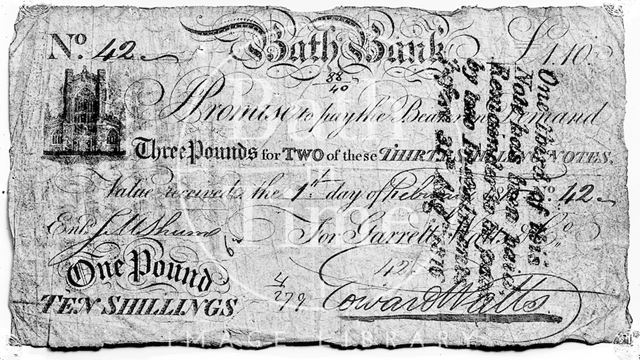 No. 42
Bath Bank
£1.10
88
40
Promise to pay the Bearer on Demand
Three Pounds for TWO of these THIRTY SHILLING NOTES.
Value received the 1st day of No. 42
Entd.
For Garrett Watts & Co
42
One Pound
TEN SHILLINGS
4
279
Edward Watts
One third of this
Note has been paid
Remainder is
by two
Bath
Fire
IMAGE LIBRARY